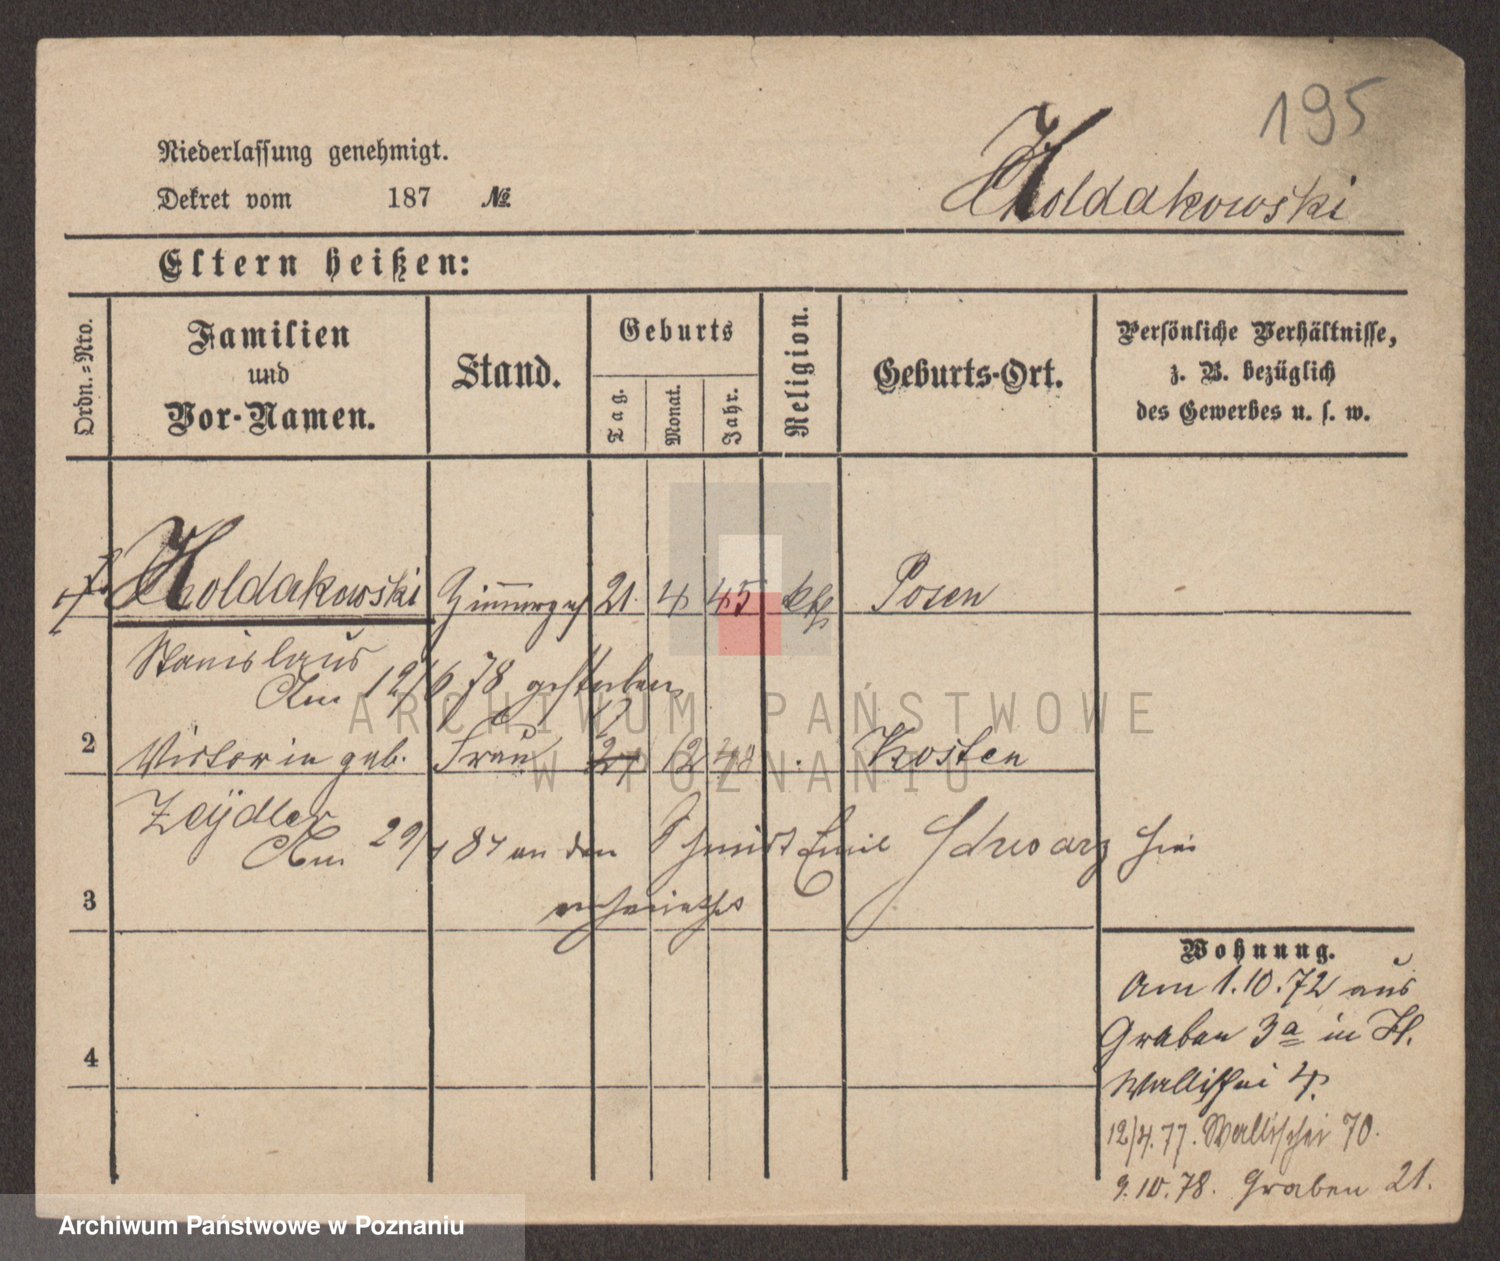 195
Holdakowski
Niederlassung genehmigt.
Dekret vom 187 №
Eltern heißen:
Ordn.=Nro.
Familien
und
Vor-Namen.
Stand.
Geburts
Tag.
Monat.
Jahr.
Religion.
Geburts-Ort.
Persönliche Verhältnisse,
z. B. bezüglich
des Gewerbes u. s. w.
Holdakowski 21. 4 45 kth Posen
Stanislaus
Am 12/6 78 gestorben
17
2 Victoria geb. Frau 21 12 48 Kosten
Zeÿdler
Am 29/ 87 an den Schmidt Emil Schwarz hier
3 verheirathet
4
Wohnung.
Am 1.10.72 aus
Graben 3a in H.
Wallischei 4.
12/4.77. Wallischei 70.
9.10.78. Graben 21.
ARCHIWUM PAŃSTWOWE
W POZNANIU
Archiwum Państwowe w Poznaniu